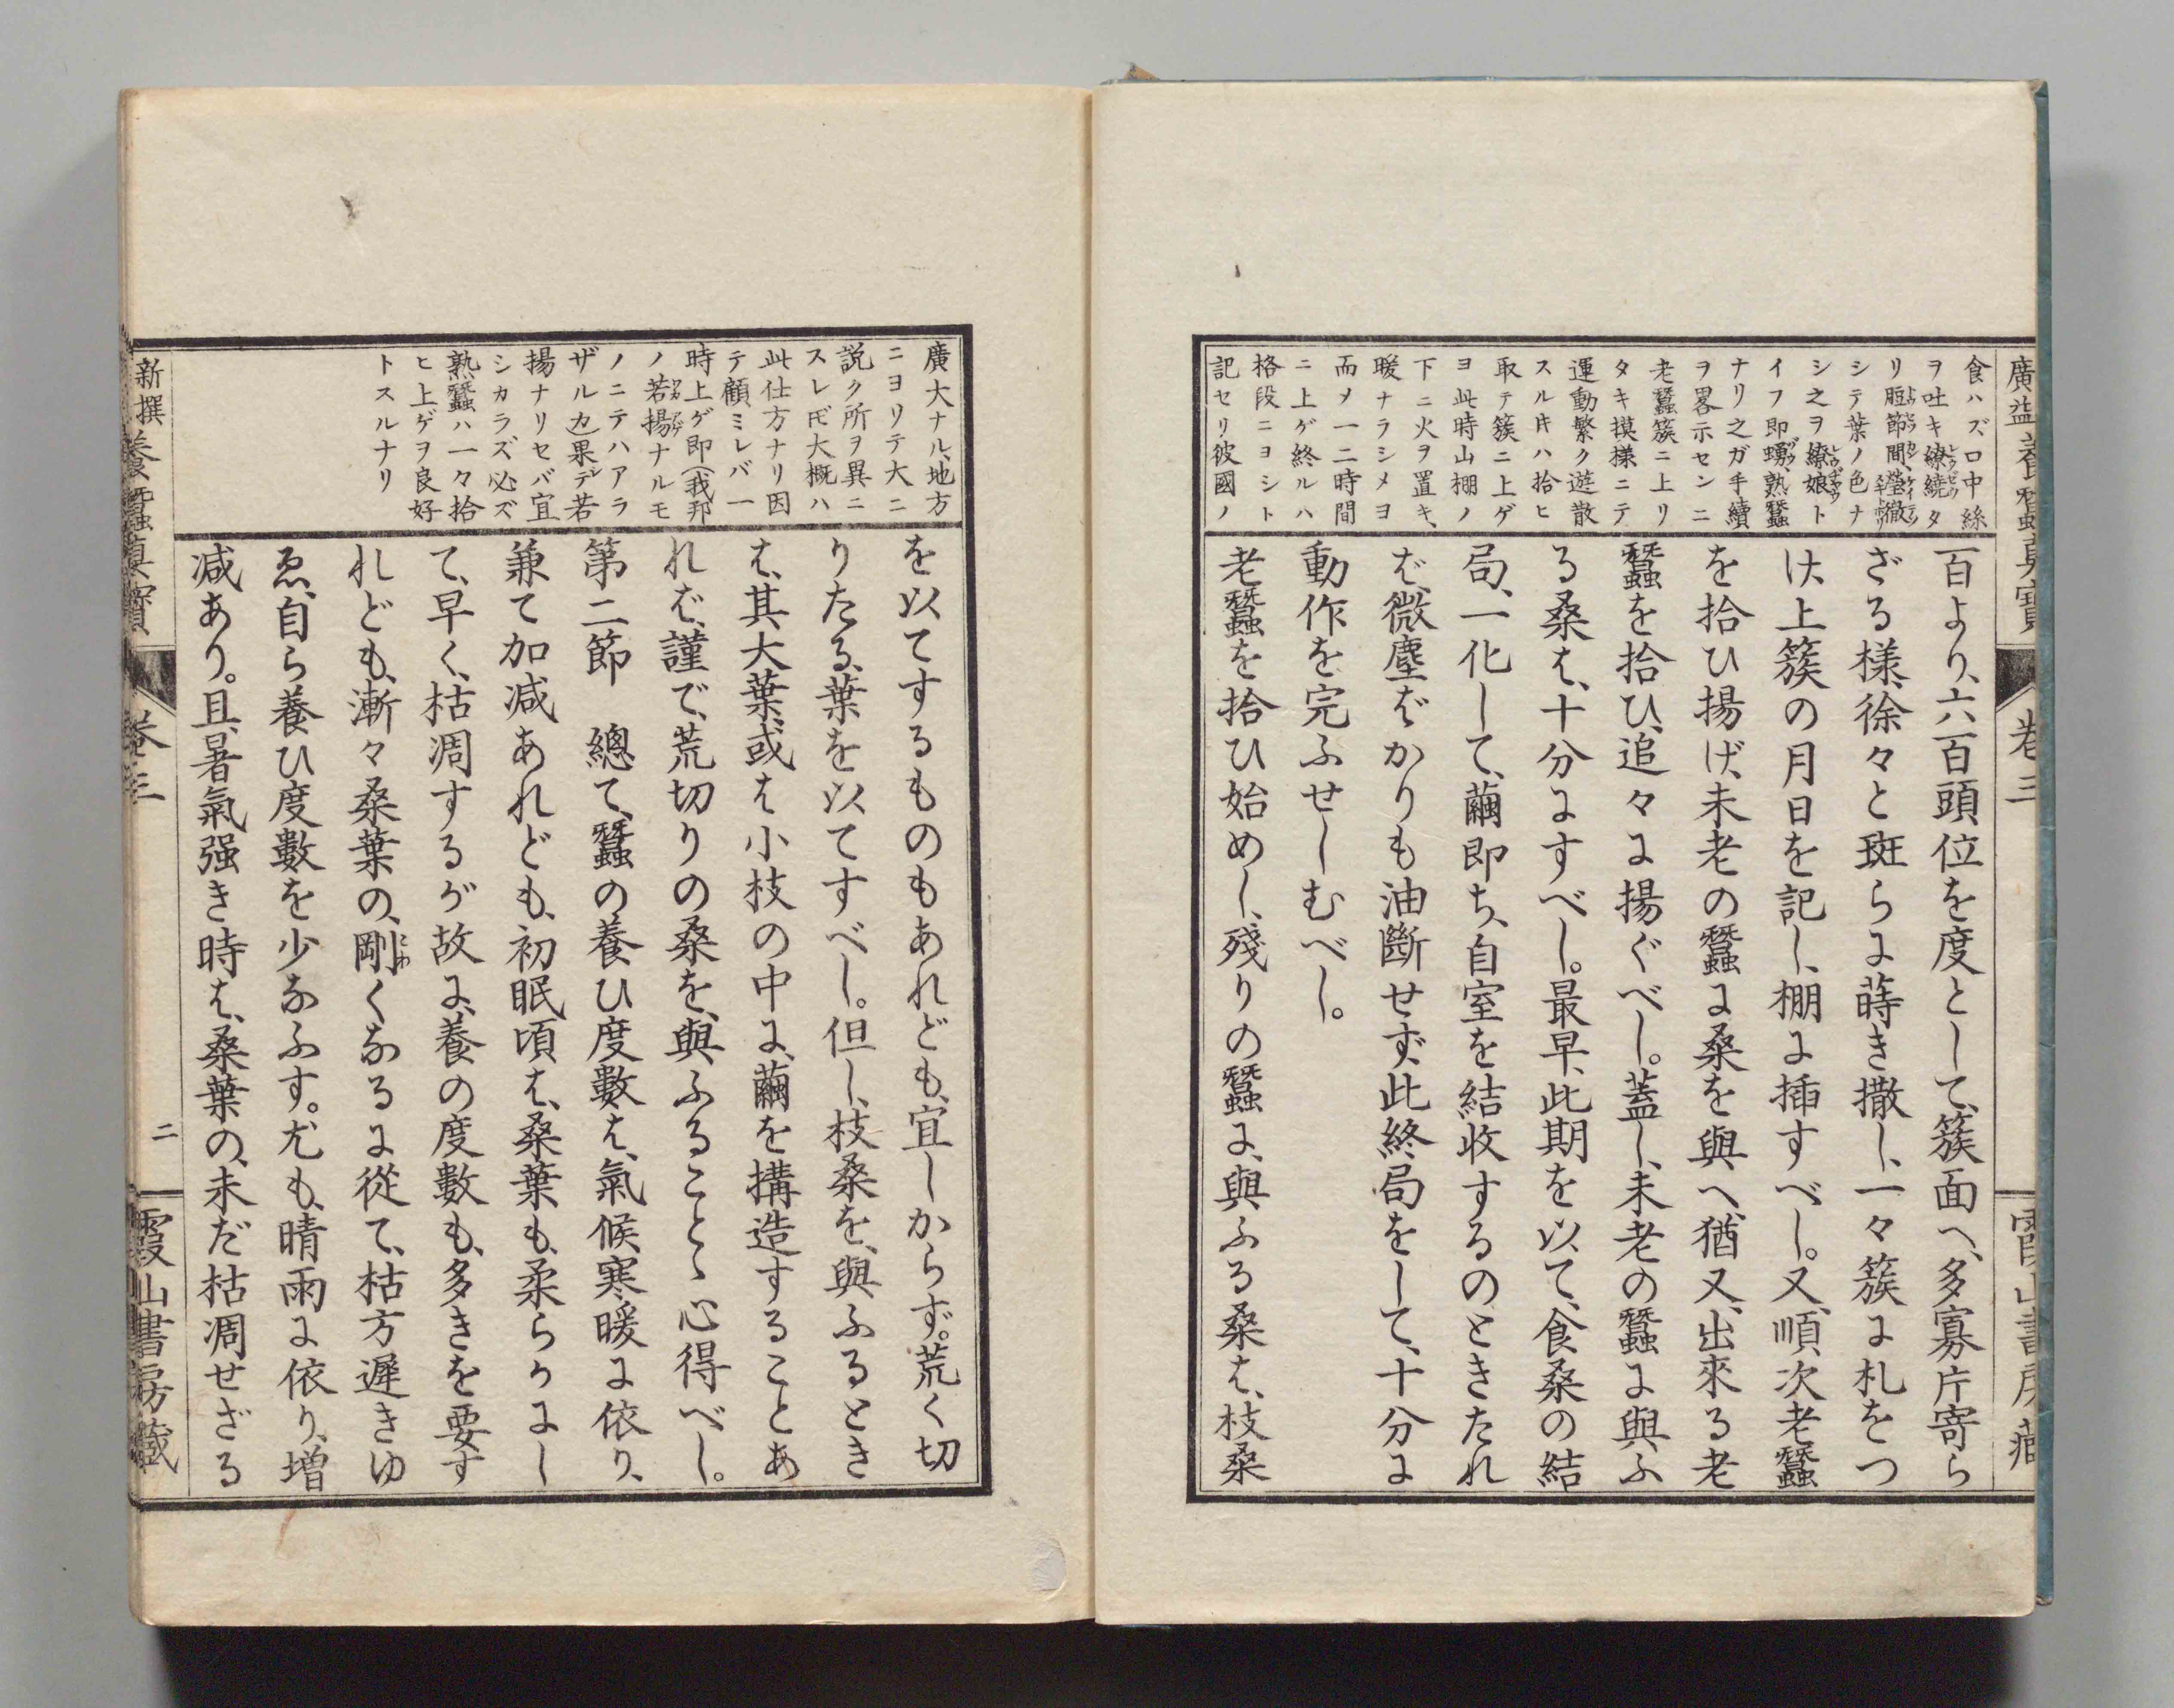 廣益養蠶眞寶
卷三
霞山書房藏
食ハズ口中絲
ヲ吐キ繚繞タ
リ脰節間瑩徹
シテ葉ノ色ナ
シ之ヲ繚娘ト
イフ即蛹熟蠶
ナリ之ガ手續
ヲ畧示センニ
老蠶簇ニ上リ
タキ摸様ニテ
運動繁ク遊散
スル時ハ拾ヒ
取テ簇ニ上ゲ
ヨ此時山棚ノ
下ニ火ヲ置キ、
暖ナラシメヨ
而メ一二時間
ニ上ゲ終ルハ
格段ニヨシト
記セリ彼國ノ
百より、六百頭位を度として、簇面へ、多寡片寄ら
ざる様、徐々と斑らに蒔き撒し、一々簇に札をつ
け、上簇の月日を記し、棚に插すべし。又、順次老蠶
を拾ひ揚げ、未老の蠶に桑を與へ、猶又、出來る老
蠶を拾ひ、追々に揚ぐべし。蓋し、未老の蠶に與ふ
る桑は、十分にすべし。最早、此期を以て、食桑の結
局、一化して、繭即ち、自室を結收するのときたれ
ば、微塵ばかりも油斷せず、此終局をして、十分に
動作を完ふせしむべし。
老蠶を拾ひ始めし、殘りの蠶に、與ふる桑は、枝桑
廣大ナル、地方
ニヨリテ大ニ
説ク所ヲ異ニ
スレ𪜈大概ハ
此仕方ナリ因
テ顧ミレバ一
時上ゲ即(我邦
ノ若揚ナルモ
ノニテハアラ
ザルカ)果デ若
揚ナリセバ宜
シカラズ必ズ
熟蠶ハ一々拾
ヒ上ゲヲ良好
トスルナリ
を以てするものもあれども、宜しからず。荒く切
りたる、葉を以てすべし。但し、枝桑を、與ふるとき
は、其大葉、或は小枝の中に、繭を搆造することあ
れば、謹で、荒切りの桑を、與ふることゝ心得べし。
第二節　總て、蠶の養ひ度數は、氣候、寒暖に依り、
兼て加减あれども、初眠頃は、桑葉も、柔らかにし
て、早く、枯凋するが故に、養の度數も、多きを要す
れども、漸々桑葉の、剛くなるに從て、枯方遲きゆ
ゑ、自ら養ひ度數を少なふす。尤も、晴雨に依り、増
减あり。且、暑氣强き時は、桑葉の、未だ枯凋せざる
新撰養蠶眞寶
卷三
二
霞山書房藏